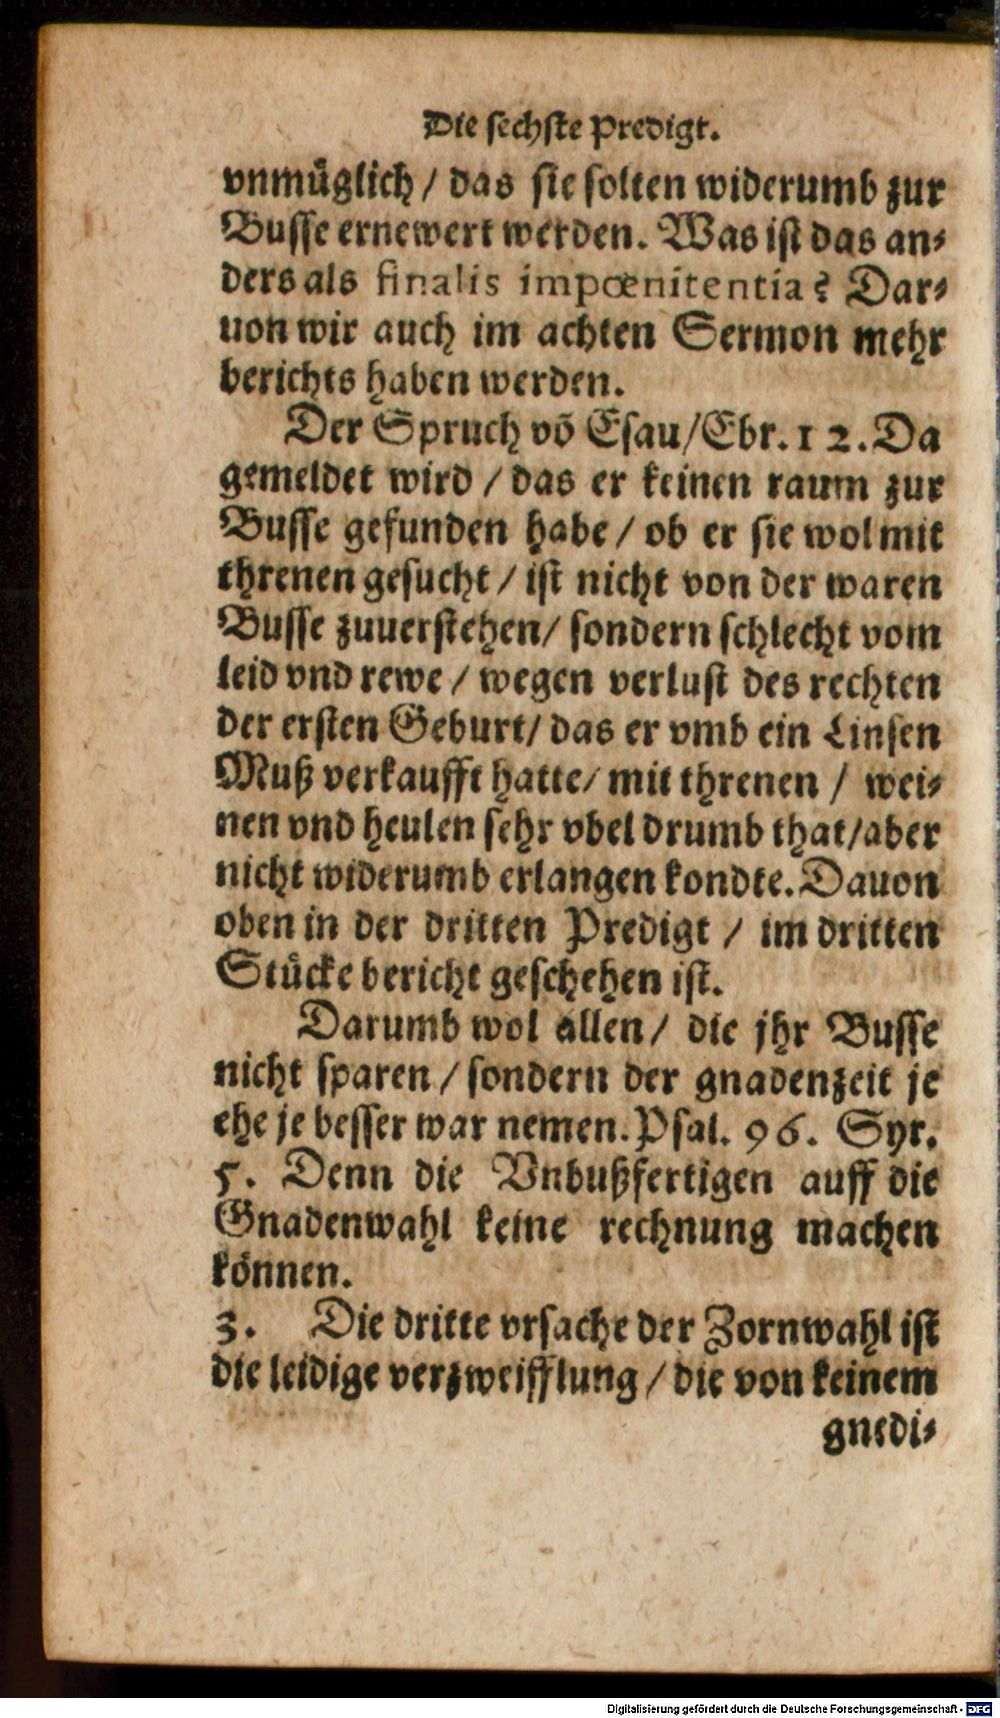 Die sechste Predigt.
vnmüglich / das sie solten widerumb zur
Busse ernewert werden. Was ist das an-
ders als finalis impœnitentia? Dar-
uon wir auch im achten Sermon mehr
berichts haben werden.
Der Spruch võ Esau/Ebr. 12. Da
gemeldet wird / das er keinen raum zur
Busse gefunden habe / ob er sie wol mit
threnen gesucht / ist nicht von der waren
Busse zuuerstehen/ sondern schlecht vom
leid vnd rewe / wegen verlust des rechten
der ersten Geburt/ das er vmb ein Linsen
Muß verkaufft hatte/ mit threnen / wei-
nen vnd heulen sehr vbel drumb that/aber
nicht widerumb erlangen kondte. Dauon
oben in der dritten Predigt / im dritten
Stücke bericht geschehen ist.
Darumb wol allen/ die jhr Busse
nicht sparen / sondern der gnadenzeit je
ehe je besser war nemen. Psal. 96. Syr.
5. Denn die Vnbußfertigen auff die
Gnadenwahl keine rechnung machen
können.
3. Die dritte vrsache der Zornwahl ist
die leidige verzweifflung / die von keinem
gnedi-
Digitalisierung gefördert durch die Deutsche Forschungsgemeinschaft - DFG